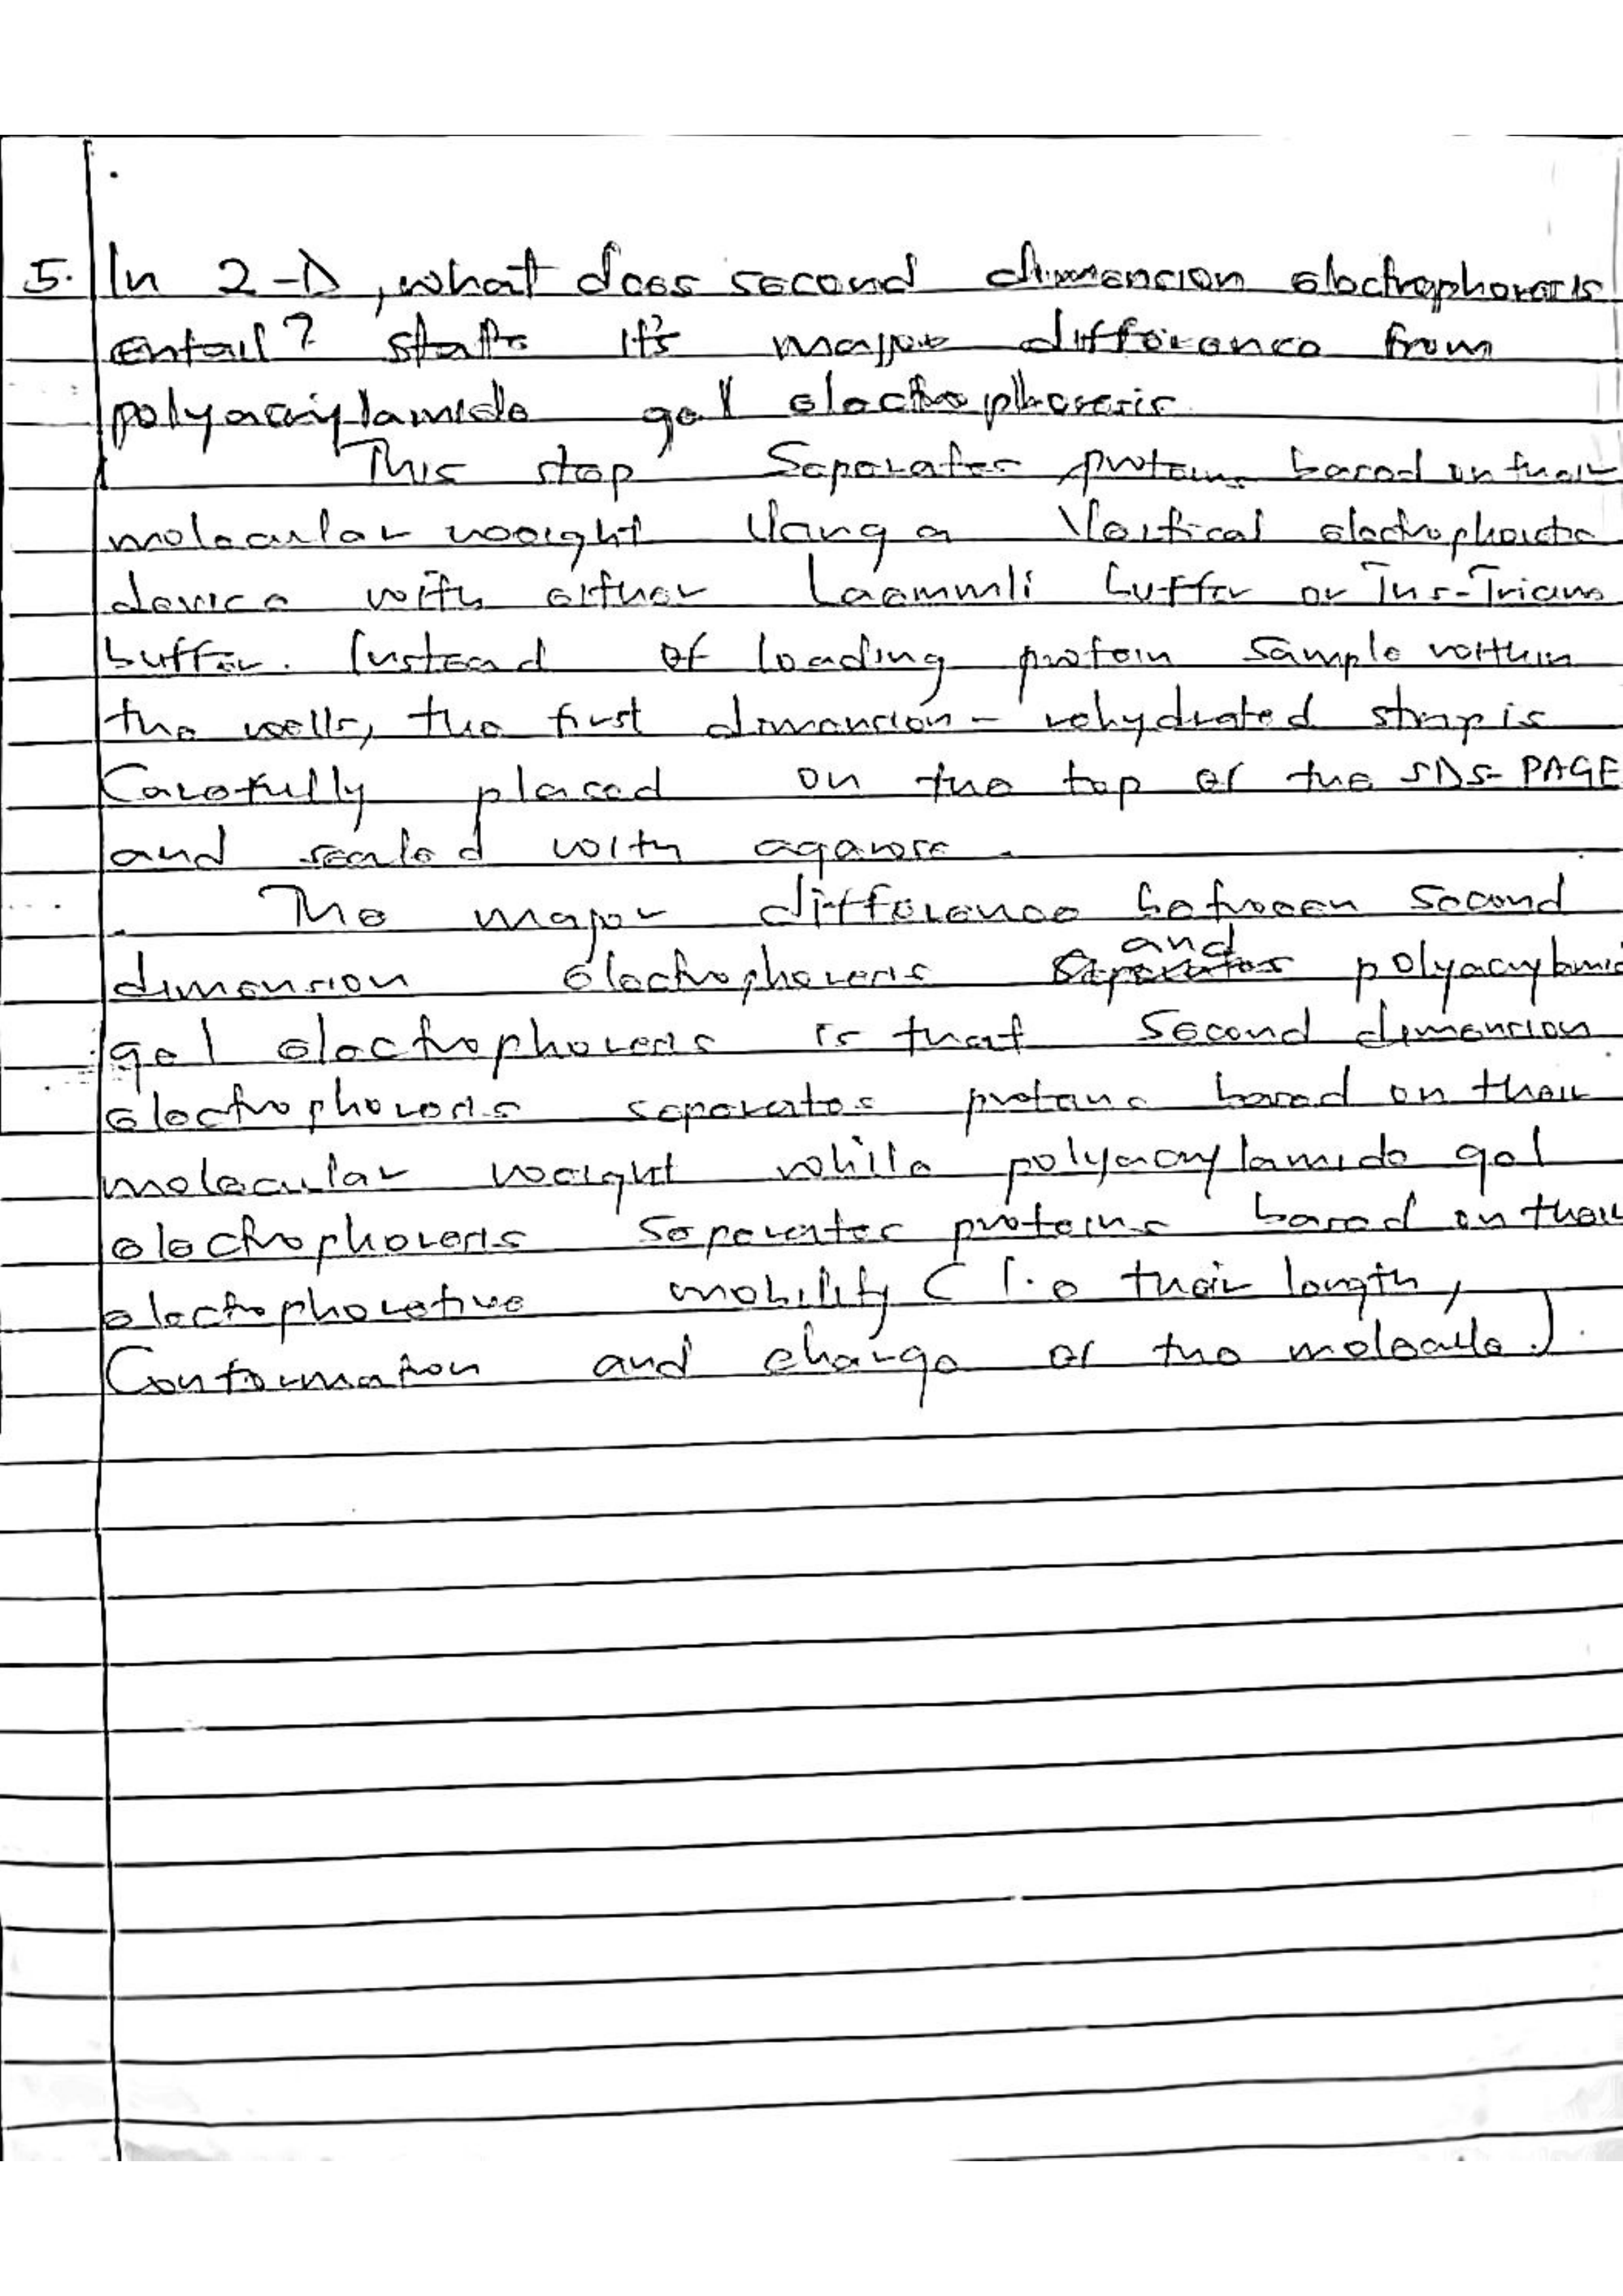 5. In 2-D, what does second dimension electrophoresis
entail? state it's major difference from
polyacrylamide gel electrophoresis
This step Separates proteins based on their
molecular weight Using a Vertical electrophoretic
device with either Laemmli buffer or Tris-Tricine
buffer. Instead of loading protein sample within
the wells, the first dimension - rehydrated strip is
Carefully placed on the top of the SDS-PAGE
and sealed with agarose.
The major difference between second
and
dimension electrophoresis polyacrylamid
gel electrophoresis is that second dimension
electrophoresis separates proteins based on their
molecular weight while polyacrylamide gel
electrophoresis separates proteins based on their
electrophoretive mobility (i.e their length,
Conformation and charge of the molecule).